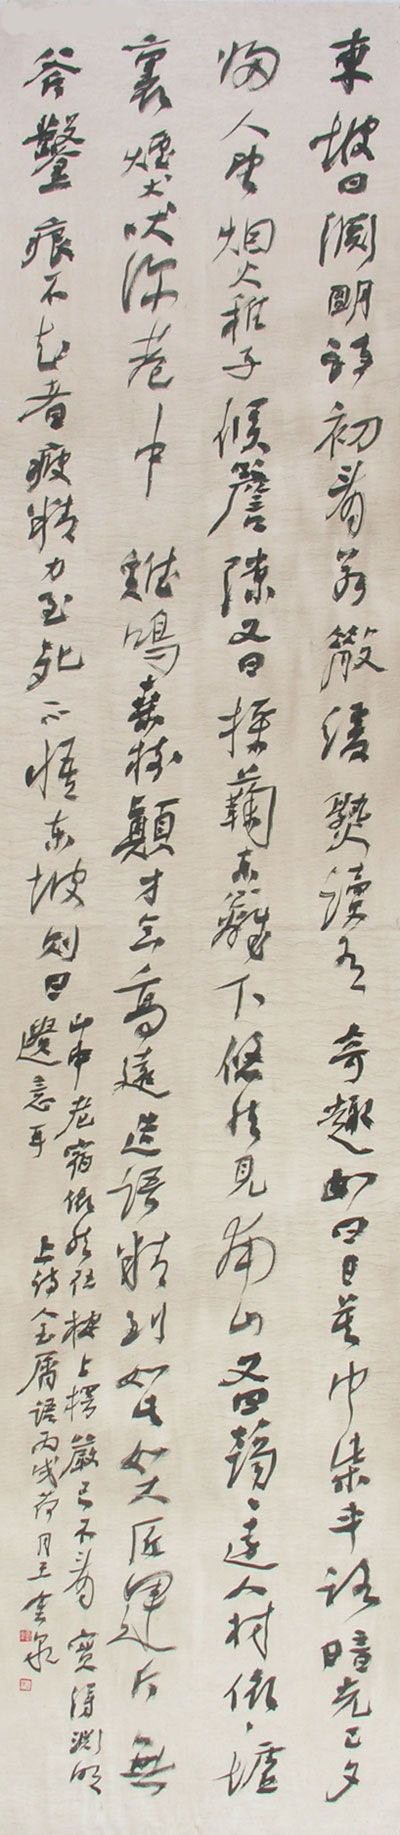 東坡曰淵明詩初看若散緩熟讀有奇趣如曰日暮巾柴車路暗光已夕
歸人望烟火稚子候簷隙又曰採菊東籬下悠然見南山又曰靄靄遠人村依依墟
裏煙犬吠深巷中雞鳴桑樹顛才意高遠造語精到如此如大匠運斤無
斧鑿痕不知者疲精力至死不悟東坡則曰
山中老宿依然在案上楞嚴已不看實得淵明
遺意耳 語丙戌荷月王金泉